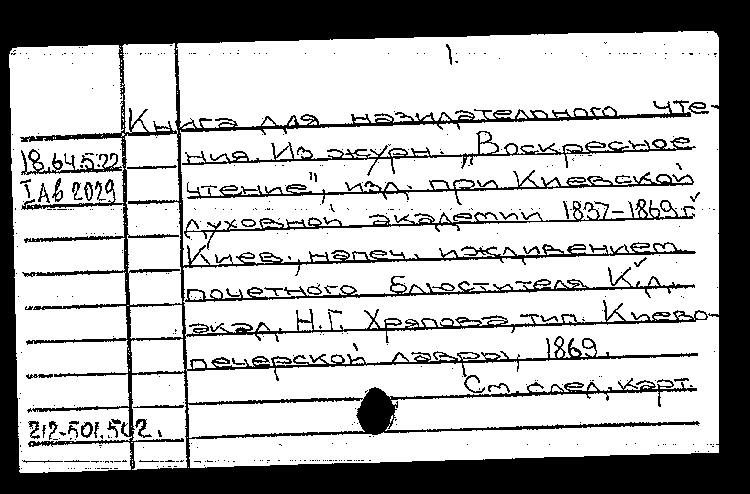 1.
Книга для назидательного чте-
18.64.5.22 ния. Из журн. „Воскресное
I Ab 2029 чтение", изд. при Киевской
духовной академии 1837-1869 г.
Киев, напеч. иждивением
почетного блюстителя К. д.
акад. Н.Г. Хряпова, тип. Киево-
печерской лавры, 1869.
См. след. карт.
212-501.502.